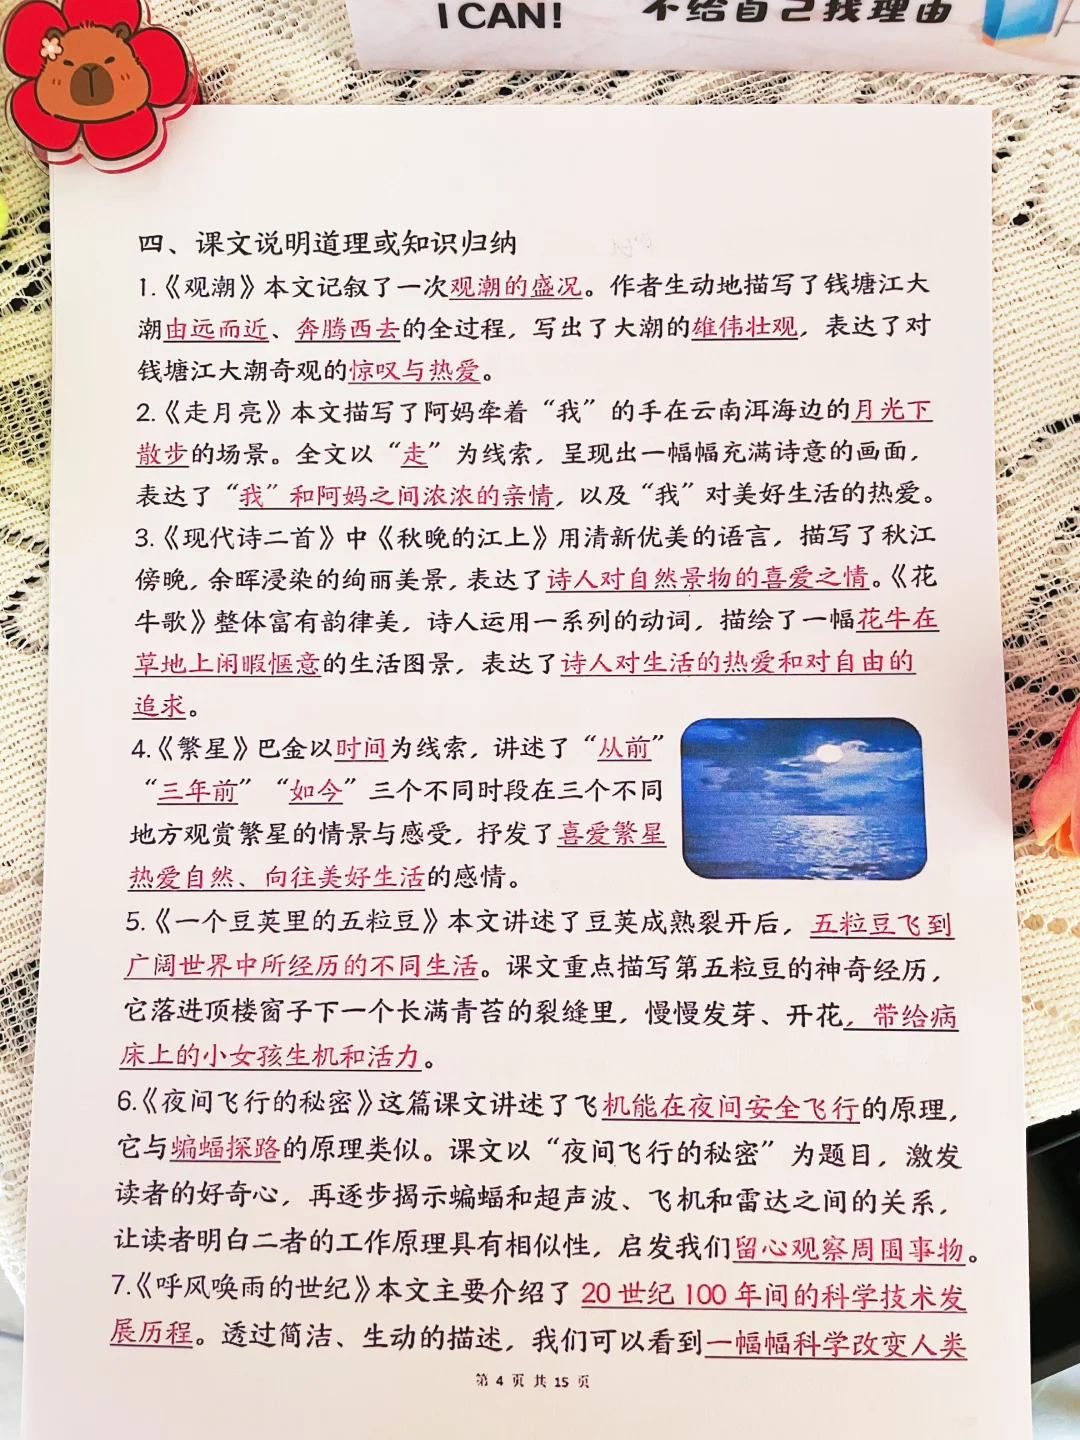 I CAN!
不给自己找理由
四、课文说明道理或知识归纳
1.《观潮》本文记叙了一次观潮的盛况。作者生动地描写了钱塘江大
潮由远而近、奔腾西去的全过程，写出了大潮的雄伟壮观，表达了对
钱塘江大潮奇观的惊叹与热爱。
2.《走月亮》本文描写了阿妈牵着“我”的手在云南洱海边的月光下
散步的场景。全文以“走”为线索，呈现出一幅幅充满诗意的画面，
表达了“我”和阿妈之间浓浓的亲情，以及“我”对美好生活的热爱。
3.《现代诗二首》中《秋晚的江上》用清新优美的语言，描写了秋江
傍晚，余晖浸染的绚丽美景，表达了诗人对自然景物的喜爱之情。《花
牛歌》整体富有韵律美，诗人运用一系列的动词，描绘了一幅花牛在
草地上闲暇惬意的生活图景，表达了诗人对生活的热爱和对自由的
追求。
4.《繁星》巴金以时间为线索，讲述了“从前”
“三年前”“如今”三个不同时段在三个不同
地方观赏繁星的情景与感受，抒发了喜爱繁星
热爱自然、向往美好生活的感情。
5.《一个豆荚里的五粒豆》本文讲述了豆荚成熟裂开后，五粒豆飞到
广阔世界中所经历的不同生活。课文重点描写第五粒豆的神奇经历，
它落进顶楼窗子下一个长满青苔的裂缝里，慢慢发芽、开花，带给病
床上的小女孩生机和活力。
6.《夜间飞行的秘密》这篇课文讲述了飞机能在夜间安全飞行的原理，
它与蝙蝠探路的原理类似。课文以“夜间飞行的秘密”为题目，激发
读者的好奇心，再逐步揭示蝙蝠和超声波、飞机和雷达之间的关系，
让读者明白二者的工作原理具有相似性，启发我们留心观察周围事物。
7.《呼风唤雨的世纪》本文主要介绍了 20 世纪 100 年间的科学技术发
展历程。透过简洁、生动的描述，我们可以看到一幅幅科学改变人类
第 4 页 共 15 页